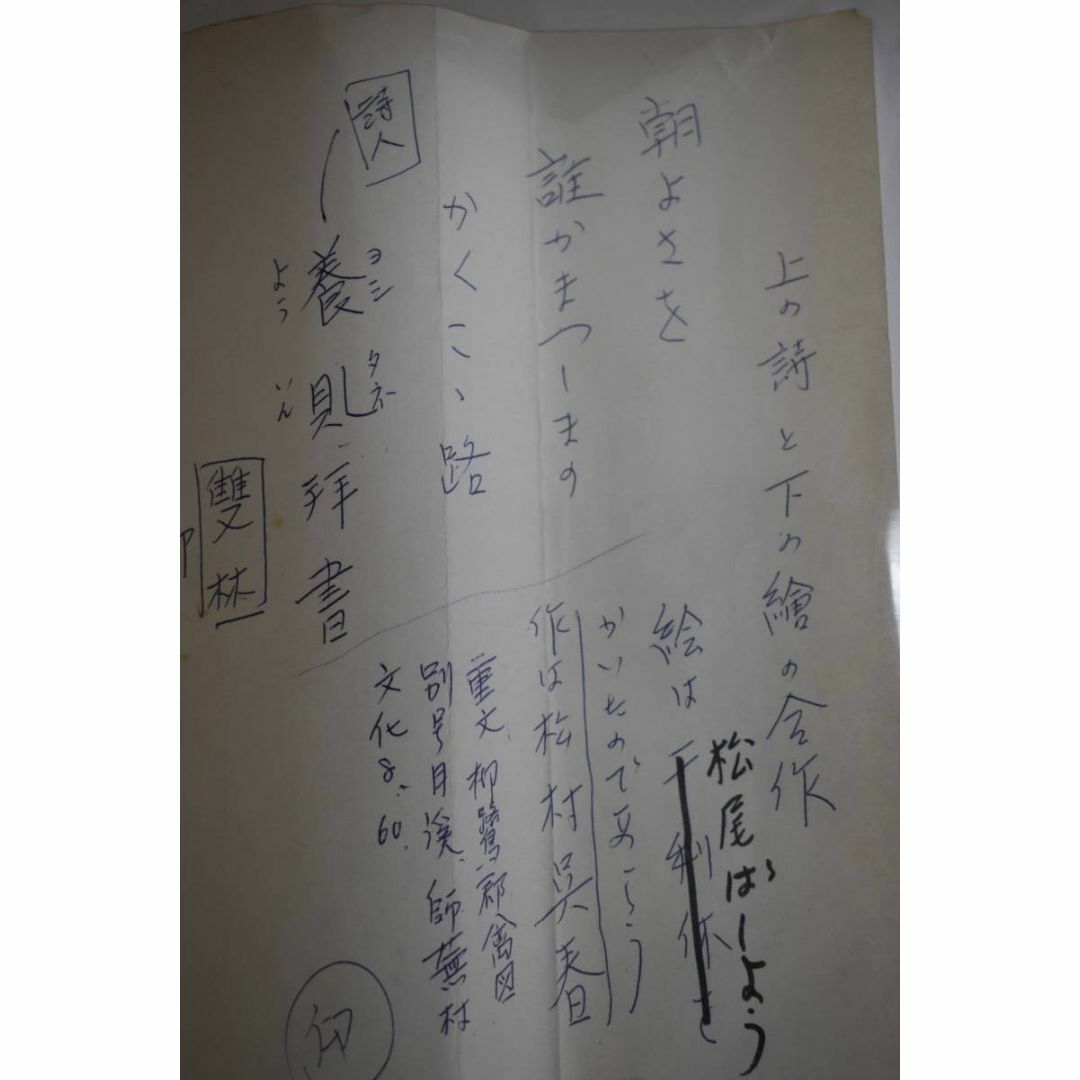 上の詩と下の繪の合作
朝よさを
誰かまつしまの
かくこゝ路
詩人
養則拜書
ヨシ
タネ
よう
いん
雙林
印
絵は千利休を
松尾ばしよう
かいたのであらう
作は松村呉春
重文 柳鷺群禽図
別号月溪、師蕪村
文化8. 60.
印